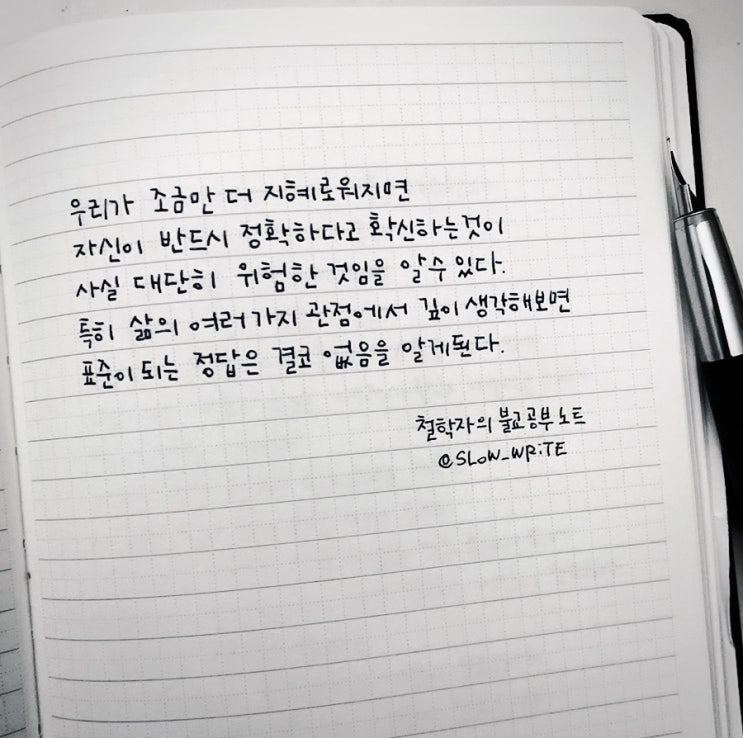 우리가 조금만 더 지혜로워지면
자신이 반드시 정확하다고 확신하는것이
사실 대단히 위험한 것임을 알수 있다.
특히 삶의 여러가지 관점에서 깊이 생각해보면
표준이 되는 정답은 결코 없음을 알게된다.
철학자의 불교공부노트
@SLOW_WRiTE